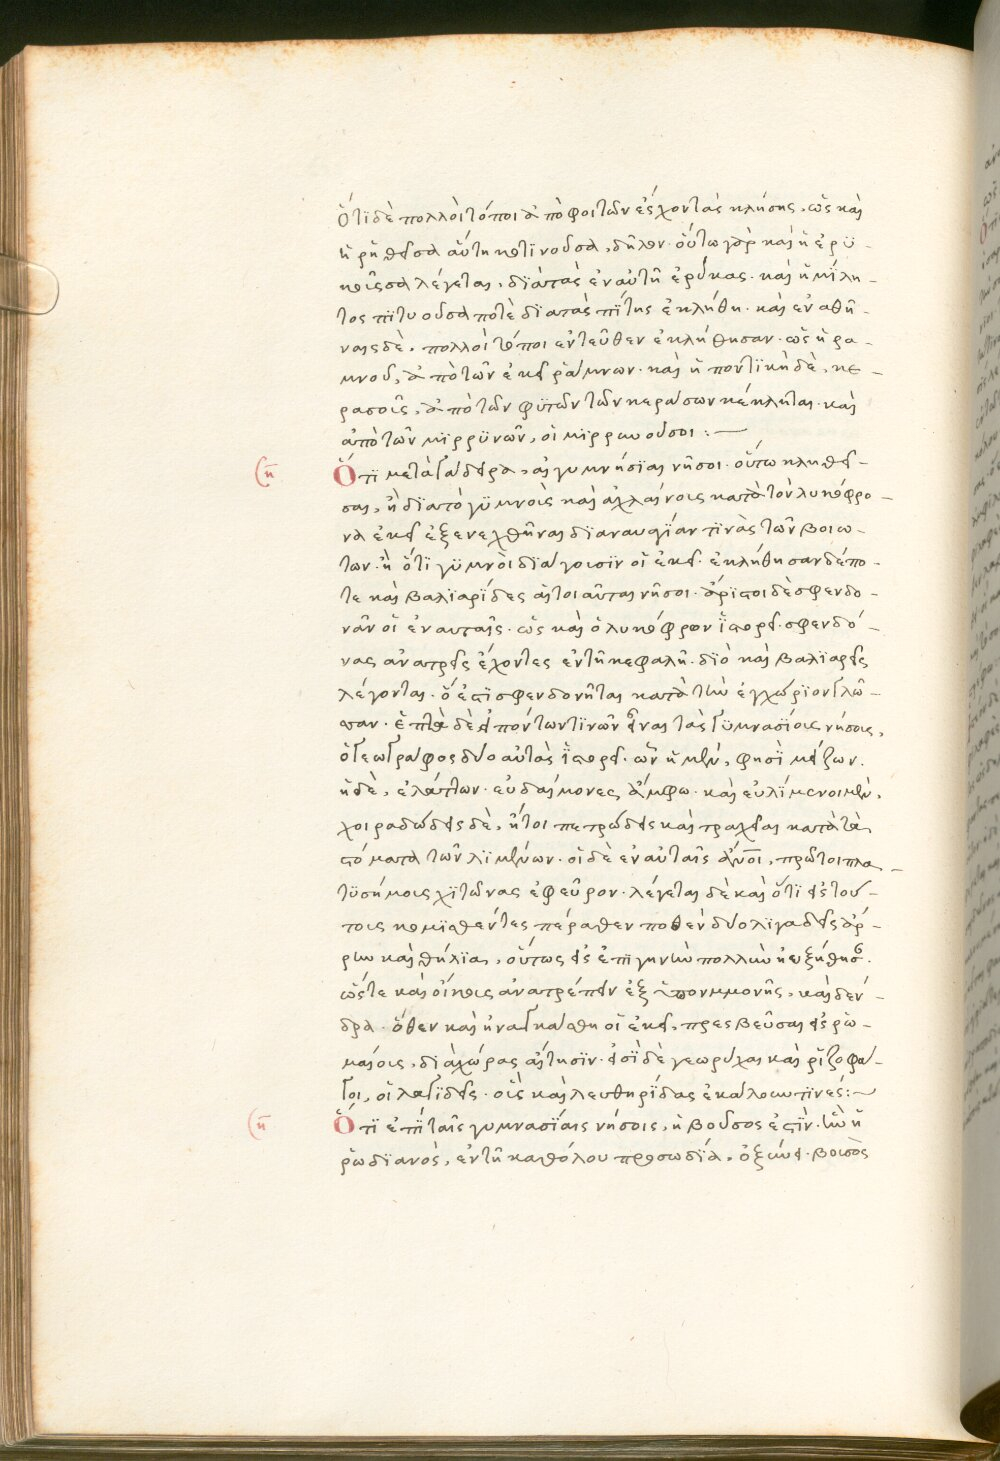 Ὅτι δὲ πολλοὶ τόποι ἀπὸ φοιτῶν ἔσχον τὰς κλήσης, ὡς καὶ
ἡ ῥηθεῖσα αὕτη κοτινοῦσα, δῆλον· οὕτω γὰρ καὶ ἡ ἐρϋ-
κοῖσα λέγεται, διὰ τὰς ἐν αὐτῇ ἐρύκας· καὶ ἡ μίλη-
τος πιτυοῦσα ποτὲ διὰ τὰς πίτης ἐκλήθη· καὶ ἐν ἀθή-
ναις δὲ, πολλοὶ τόποι ἐντεῦθεν ἐκλήθησαν· ὡς ἡ ῥα-
μνοῦ, ἀπὸ τῶν ἐκεῖ ῥάμνων· καὶ ἡ ποντικὴ δὲ, κε-
ρασοῖς, ἀπὸ τῶν φϋτῶν τῶν κεράσων κέκληται· καὶ
ἀπὸ τῶν μϊρρϋνῶν, οἱ μϊρρινοῦσοι :—
(ση) Ὅτι μετὰ γάδειρα, αἱ γυμνήσιαι νῆσοι· οὕτω κληθεῖ-
σαι, ἢ διὰ τὸ γϋμνοὶς καὶ ἀχλαίνοις κατὰ τὸν λυκόφρο-
να ἐκεῖ ἐξενεχθῆναι διαναυαγίαν τινὰς τῶν βοιω-
τῶν· ἢ ὅτι γϋμνοὶ διάγουσιν οἱ ἐκεῖ· ἐκλήθησαν δέ πο-
τε καὶ βαλιαρίδες αἵτοι αὗται νῆσοι· ἄριστοι δὲ σφενδο-
νᾶν οἱ ἐν αυταῖς· ὡς καὶ ὁ λυκόφρων ἱστορεῖ· σφενδό-
νας ἀνατρεῖς ἔχοντες ἐν τῇ κεφαλῇ· διὸ καὶ βαλιαρεῖς
λέγονται· ὅ ἐστι σφενδονῆται κατὰ τὴν ἐγχώριον γλῶ-
σσαν· ἑπτὰ δὲ εἰπόντων τινῶν εἶναι τὰς γϋμνασίοις νήσοις,
ὁ γεωγράφος δύο αὐτὰς ἱστορεῖ· ὧν ἡ μὲν, φησὶ μείζων·
ἡ δὲ, ἐλάττων· εὐδαίμονες ἄμφω· καὶ εὐλίμενοι μὲν,
χοιραδώδεις δὲ, ἤτοι πετρώδεις καὶ τραχεῖαι κατὰ τὰ
στόματα τῶν λϊμένων· οἱ δὲ ἐν αὐταῖς ἄνοι, πρῶτοι πλα-
τϋσήμοις χϊτῶνας ἐφεῦρον· λέγεται δὲ καὶ ὅτι εἰς τού-
τοις κομισθέντες πέραθεν ποθὲν δύο λϊγαδεῖς ἄρ-
ρην καὶ θήλϊα, οὕτως εἰς ἐπιγην ὼ πολλὴν ηὐξήθησ.
ὥστε καὶ οἴκοις ἀνατρέπειν ἐξ ὑπονμμονῆς, καὶ δέν-
δρα· ὅθεν καὶ ἠναγκάσθη οἱ ἐκεῖ, πρεσβεῦσαι εἰς ῥω-
μαίοις, διὰ χώρας αἴτησϊν· εἰσὶ δὲ γεωρύχαι καὶ ῥϊζοφά-
γοι, οἱ λαγιδεῖς· οἷς καὶ λευθηρίδας ἐκάλουν τινές :~
(ση) Ὅτι ἐπὶ ταῖς γυμνασίαις νήσοις, ἡ βοῦσος ἐστὶν· ἣν ἡ
ῥωδϊανὸς, ἐν τῇ καθόλου προσωδία, ὀξύνει· βουσὸς